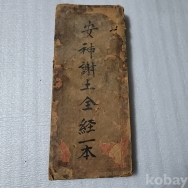 安神謝土全経一本
kobay